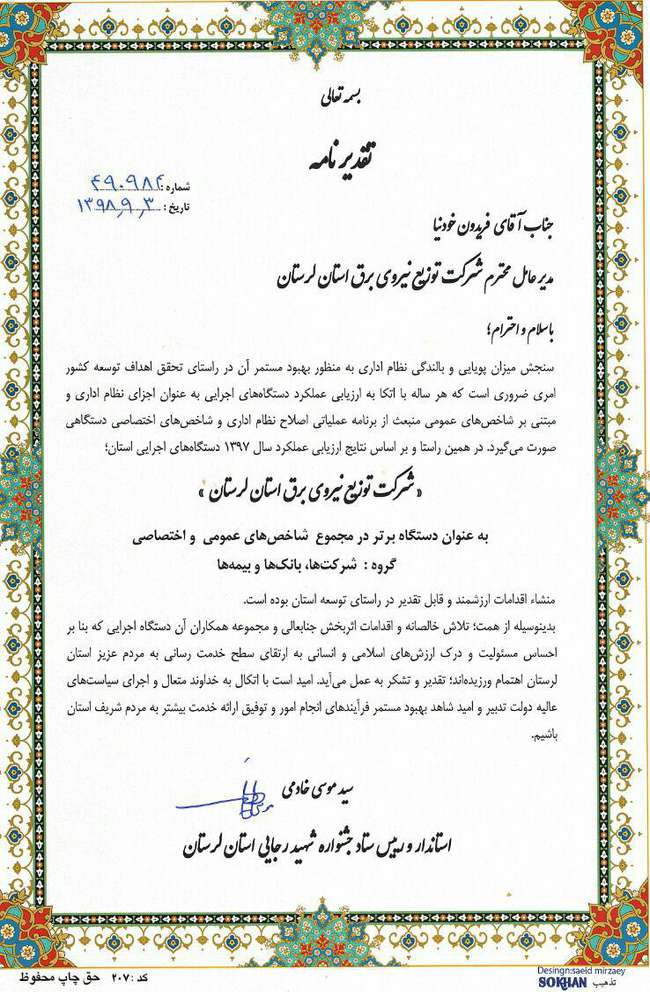 بسمه تعالی
تقدیرنامه
شماره: ۴۹۰۹۸۴
تاریخ: ۱۳۹۸٫۹٫۳
جناب آقای فریدون خودنیا
مدیرعامل محترم شرکت توزیع نیروی برق استان لرستان
باسلام و احترام؛
سنجش میزان پویایی و بالندگی نظام اداری به منظور بهبود مستمر آن در راستای تحقق اهداف توسعه کشور
امری ضروری است که هر ساله با اتکا به ارزیابی عملکرد دستگاه‌های اجرایی به عنوان اجزای نظام اداری و
مبتنی بر شاخص‌های عمومی منبعث از برنامه عملیاتی اصلاح نظام اداری و شاخص‌های اختصاصی دستگاهی
صورت می‌گیرد. در همین راستا و بر اساس نتایج ارزیابی عملکرد سال ۱۳۹۷ دستگاه‌های اجرایی استان؛
« شرکت توزیع نیروی برق استان لرستان »
به عنوان دستگاه برتر در مجموع شاخص‌های عمومی و اختصاصی
گروه : شرکت‌ها، بانک‌ها و بیمه‌ها
منشاء اقدامات ارزشمند و قابل تقدیر در راستای توسعه استان بوده است.
بدینوسیله از همت؛ تلاش خالصانه و اقدامات اثربخش جنابعالی و مجموعه همکاران آن دستگاه اجرایی که بنا بر
احساس مسئولیت و درک ارزش‌های اسلامی و انسانی به ارتقای سطح خدمت رسانی به مردم عزیز استان
لرستان اهتمام ورزیده‌اند؛ تقدیر و تشکر به عمل می‌آید. امید است با اتکال به خداوند متعال و اجرای سیاست‌های
عالیه دولت تدبیر و امید شاهد بهبود مستمر فرآیندهای انجام امور و توفیق ارائه خدمت بیشتر به مردم شریف استان
باشیم.
سید موسی خادمی
استاندار و رییس ستاد جشنواره شهید رجایی استان لرستان
کد : ۲۰۷ حق چاپ محفوظ
Desingn:saeid mirzaey
تذهیب SOKHAN